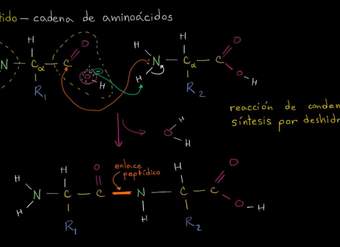 tido — cadena de aminoácidos
H
H
O
H
O
N
Cα
C
H
N
Cα
C
O
H
H
R1
H
R2
reacción de conden
síntesis por deshid
H
O
H
enlace
peptídico
H
O
H
O
H
N
C
C
N
C
C
O
H
H
R1
H
R2